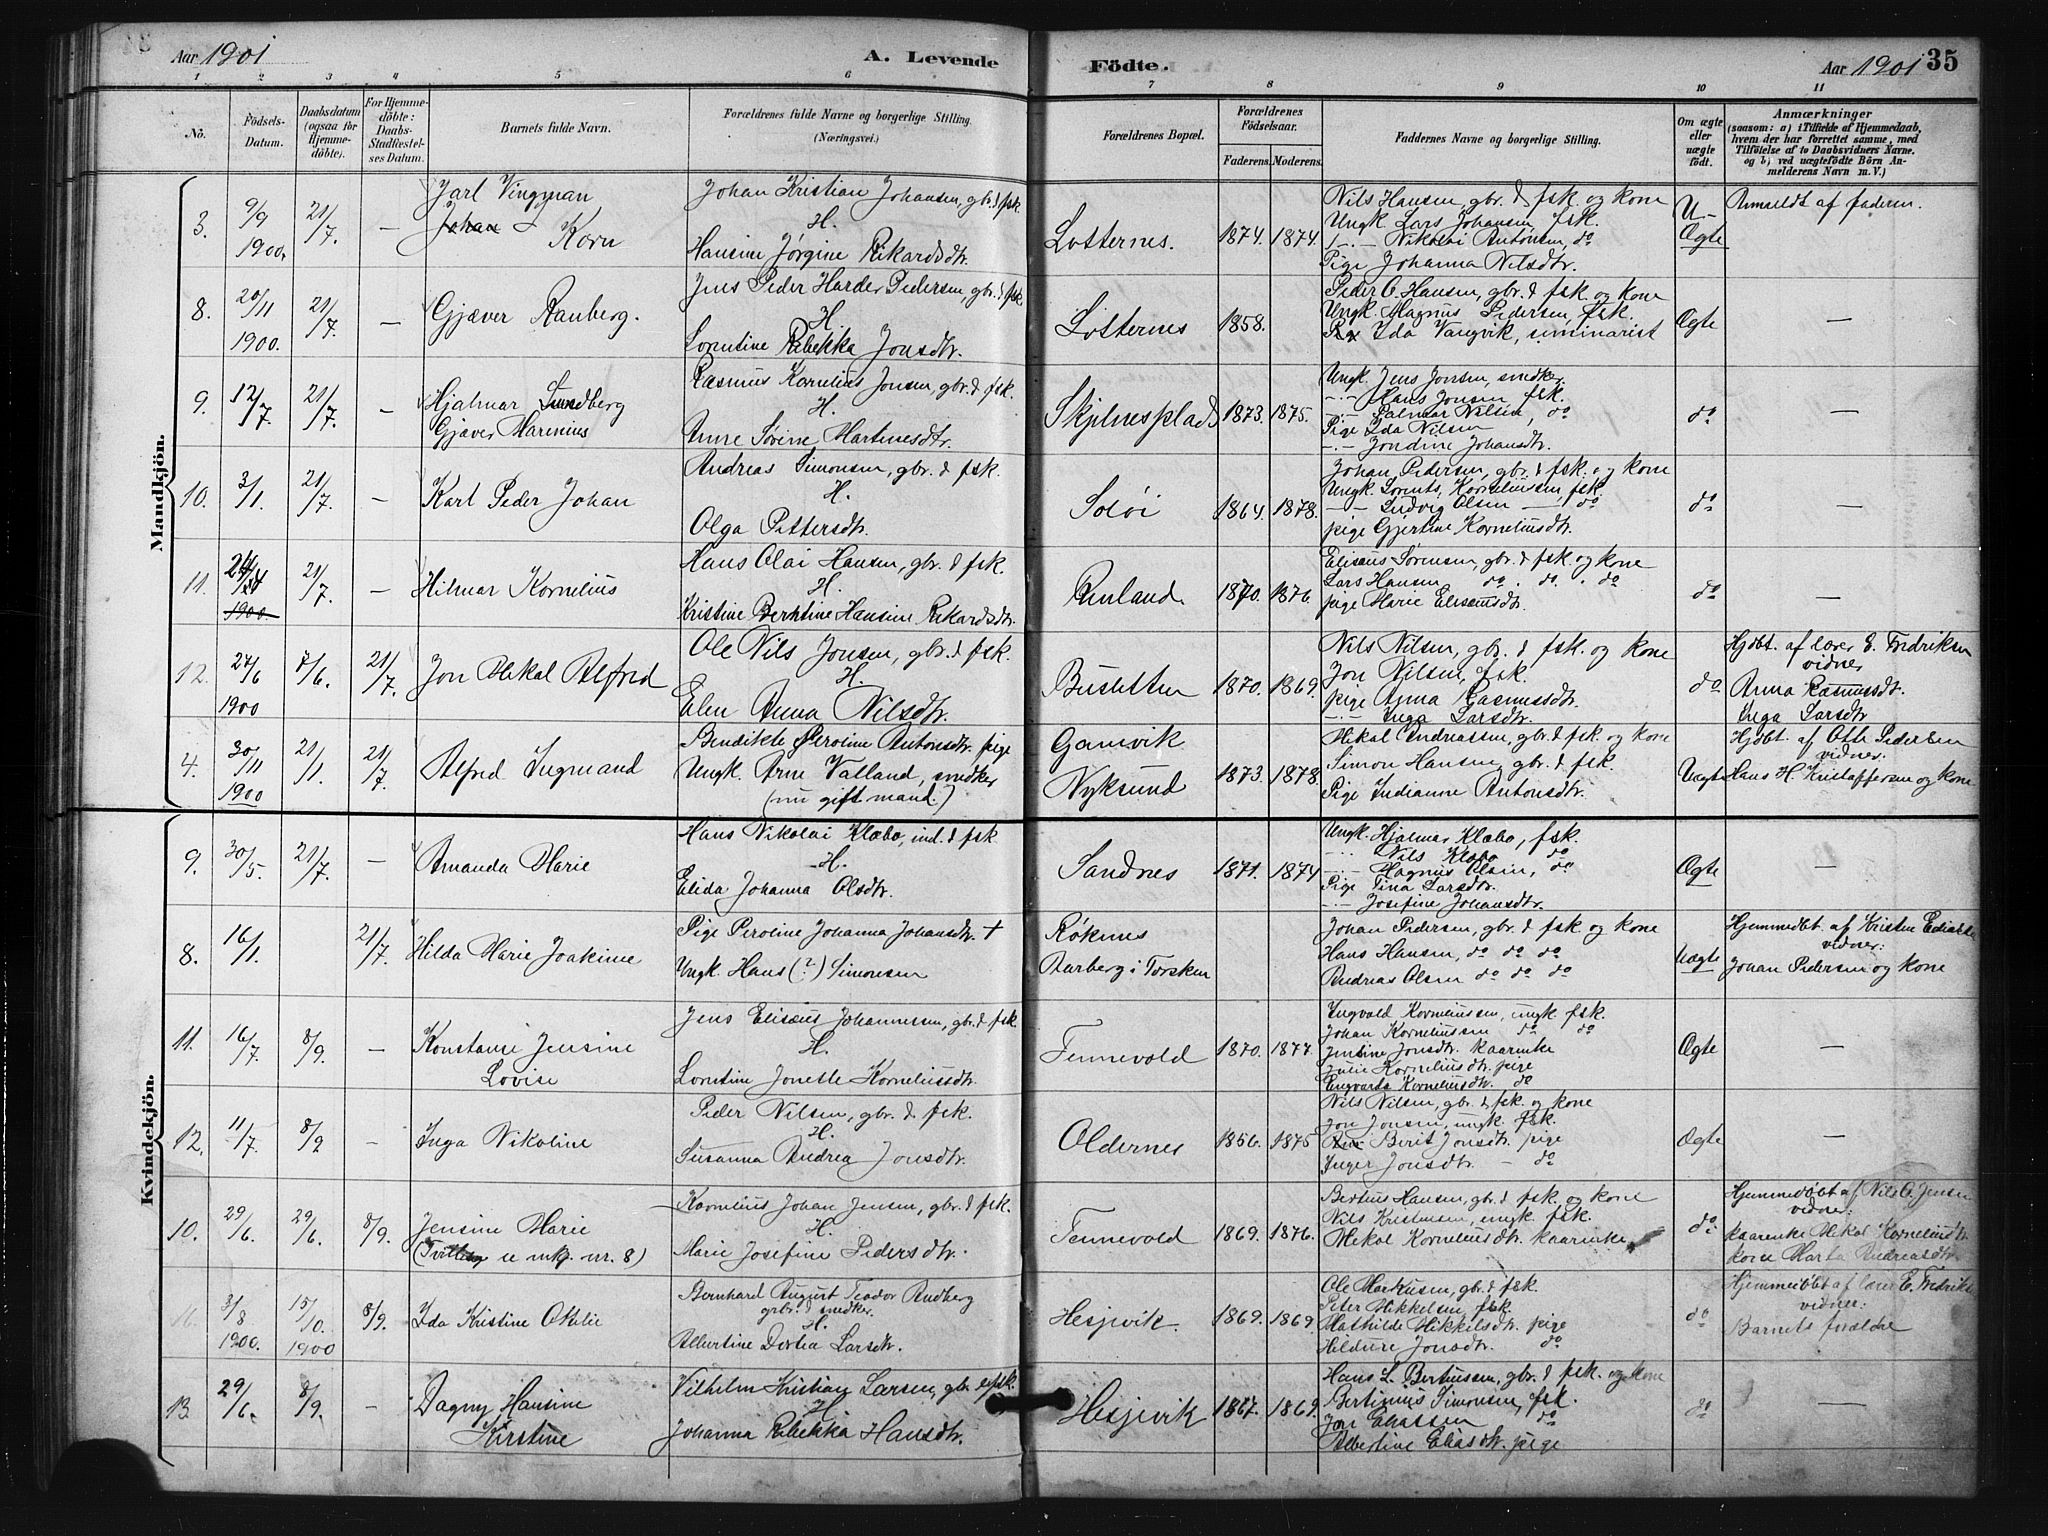 Aar 1901
A. Levende
Födte.
Aar 1901
35
1 2 3 4 5 6 7 8 9 10 11
No.
Födsels-
Datum.
Daabsdatum
(ogsaa for
Hjemme-
döbte).
For Hjemme-
döbte:
Daabs-
Stadfæstel-
ses Datum.
Barnets fulde Navn.
Forældrenes fulde Navne og borgerlige Stilling.
(Næringsvei.)
Forældrenes Bopæl.
Forældrenes
Födselsaar.
Faderens. Moderens.
Faddernes Navne og borgerlige Stilling.
Om ægte
eller
uægte
födt.
Anmærkninger
(saasom: a) i Tilfælde af Hjemmedaab,
hvem der har forrettet samme, med
Tilföielse af to Daabsvidners Navne.
og b) ved uægtefödte Börn An-
melderens Navn m. V.)
Mandkjön.
3. 9/9 1900. 21/7. —
Jarl Vingman
Johan
Korn
Johan Kristian Johansen, gbr. & fsk.
H.
Hansine Jørgine Rikardsdtr.
Lotternes. 1874. 1874.
Nils Hansen, gbr. & fsk. og kone
Ungk. Lars Johansen, fsk.
-"- Nikolai Antonsen, do
Pige Johanna Nilsdtr.
U-
Ægte
Anmeldt af faderen.
8. 20/11 1900. 21/7. —
Gjæver Ranberg.
Jens Peder Harder Pedersen, gbr. & fsk.
H.
Lorntine Rebekka Jonsdtr.
Lotternes 1858.
Peder C. Hansen, gbr. & fsk. og kone
Ungk. Magnus Pedersen, fsk.
Ida Vangvik, seminarist
Ægte —
9. 12/7 21/7. —
Hjalmar Sundberg
Gjæver Marinius
Rasmus Kornelius Jonsen, gbr. & fsk.
H.
Anne Sørine Martinesdtr.
Skjelnesplads 1873. 1875.
Ungk. Jens Jonsen, snedker.
-"- Hans Jonsen fsk.
-"- Dalmar Nilsen, do
Pige Ida Nilsen
-"- Jondine Johansdtr.
do —
10. 3/1. 21/7. —
Karl Peder Johan
Andreas Simonsen, gbr. & fsk.
H.
Olga Pettersdtr.
Soløi 1864. 1878.
Johan Pedersen, gbr. & fsk. og kone
Ungk. Lorents Korneliussen fsk.
-"- Ludvig Olsen — do
pige Gjertine Kornelisdtr.
do —
11. 24/12 1900 21/7. —
Hilmar Kornelius
Hans Olai Hansen, gbr. & fsk.
H.
Kristine Berntine Hansine Rikardsdtr.
Rinland 1870. 1876.
Elisæus Sørensen, gbr. & fsk. og kone
Lars Hansen do. do. do
pige Marie Elisæusdtr.
do —
12. 27/6 1900 7/6. 21/7.
Jon Mikal Alfred
Ole Nils Jonsen, gbr. & fsk.
H.
Elen Anna Nilsdtr.
Busletten 1870. 1869.
Nils Nilsen, gbr. & fsk. og kone
Jon Nilsen, fsk.
pige Anna Rasmusdtr.
-"- Inga Larsdtr.
do
Hjdbt. af lærer E. Fredriksen
vidner
Anna Rasmusdtr.
Inga Larsdtr
4. 30/11 1900 21/1. 21/7.
Alfred Ingmand
Bendikte Peroline Antonsdtr. pige
Ungk. Arne Valland, snedker
(nu gift mand.)
Gamvik
Nyksund
1873. 1878.
Mikal Andreassen, gbr. & fsk. og kone
Simon Hansen, gbr. & fsk.
Pige Indianne Antonsdtr.
Uægte
Hjdbt. af Otto Pedersen
vidner:
Hans H. Kristoffersen og kone
Kvindekjön.
9. 30/5. 21/7. —
Amanda Marie
Hans Nikolai Klæbo, ind. & fsk
H.
Elida Johanna Olsdtr.
Sandnes 1871. 1874
Ungk. Hjalmar Klæbo, fsk.
-"- Nils Klæbo do
-"- Magnus Olsen, do
Pige Tina Larsdtr.
-"- Josefine Johansdtr.
Ægte —
8. 16/1. 21/7.
Hilda Marie Joakime
Pige Peroline Johanna Johansdtr. +
Ungk. Hans (?) Simonsen
Røknes
Aarberg i Torsken
Johan Pedersen, gbr. & fsk. og kone
Hans Hansen, do do do
Andreas Olsen do do do
Uægte
Hjemmedbt. af Kristen
vidner:
Johan Pedersen og kone
11. 16/7. 8/9. —
Konstanse Jensine
Lovise
Jens Elisæus Johannessen, gbr. & fsk
H.
Lorntine Jonette Korneliusdtr.
Tennevold 1870. 1877.
Ingvald Korneliussen, ungk. fsk.
Johan Korneliussen do do
Jentine Jonsdtr. kaarenke
Julie Korneliusdtr. pige
Engvarda Korneliusdtr. do
Ægte —
12. 11/7. 8/9 —
Inga Nikoline
Peder Nilsen, gbr. & fsk.
H.
Susanna Andrea Jonsdtr.
Oldernes 1856. 1875
Nils Nilsen, gbr. & fsk. og kone
Jon Jonsen, ungk. fsk.
Berit Jonsdtr. pige
Inger Jonsdtr. — do
Ægte —
10. 29/6. 29/6. 8/9.
Jensine Marie
(Tvilling se mkj. nr. 8)
Kornelius Johan Jensen, gbr. & fsk.
H.
Marie Josefine Pedersdtr.
Tennevold 1869. 1876.
Bertius Hansen, gbr. & fsk. og kone
Nils Kristensen, ungk. fsk.
Mekal Korneliusdtr. kaarenke
do
Hjemmedöbt af Nils C. Jensen
vidner:
kaarenke Mekal Korneliusdtr
kone Marta Andreasdtr.
3/8 1900. 15/10. 1900 8/9.
Ida Kristine Otelie
Bernhard August Teodor Rudberg
gbr. & snedker.
H.
Albertine Dortea Larsdtr.
Hesjevik. 1869. 1869.
Ole Markusen, gbr. & fsk.
Peter Mikkelsen, fsk.
Mathilde Mikkelsdtr. pige
Hildure Jonsdtr. do
do
Hjemmedöbt af lærer E. Fredriks
vidner:
Barnets forældre
13. 29/6. 8/9. —
Dagny Hansine
Kirstine
Vilhelm Kristian Larsen, gbr. & fsk.
H
Johanna Rebekka Hansdtr.
Hesjevik 1867. 1869.
Hans L. Berthussen, gbr. & fsk. og kone
Bertinius Simonsen, fsk.
Jon Eliassen do
Albertine Eliasdtr. pige
do —